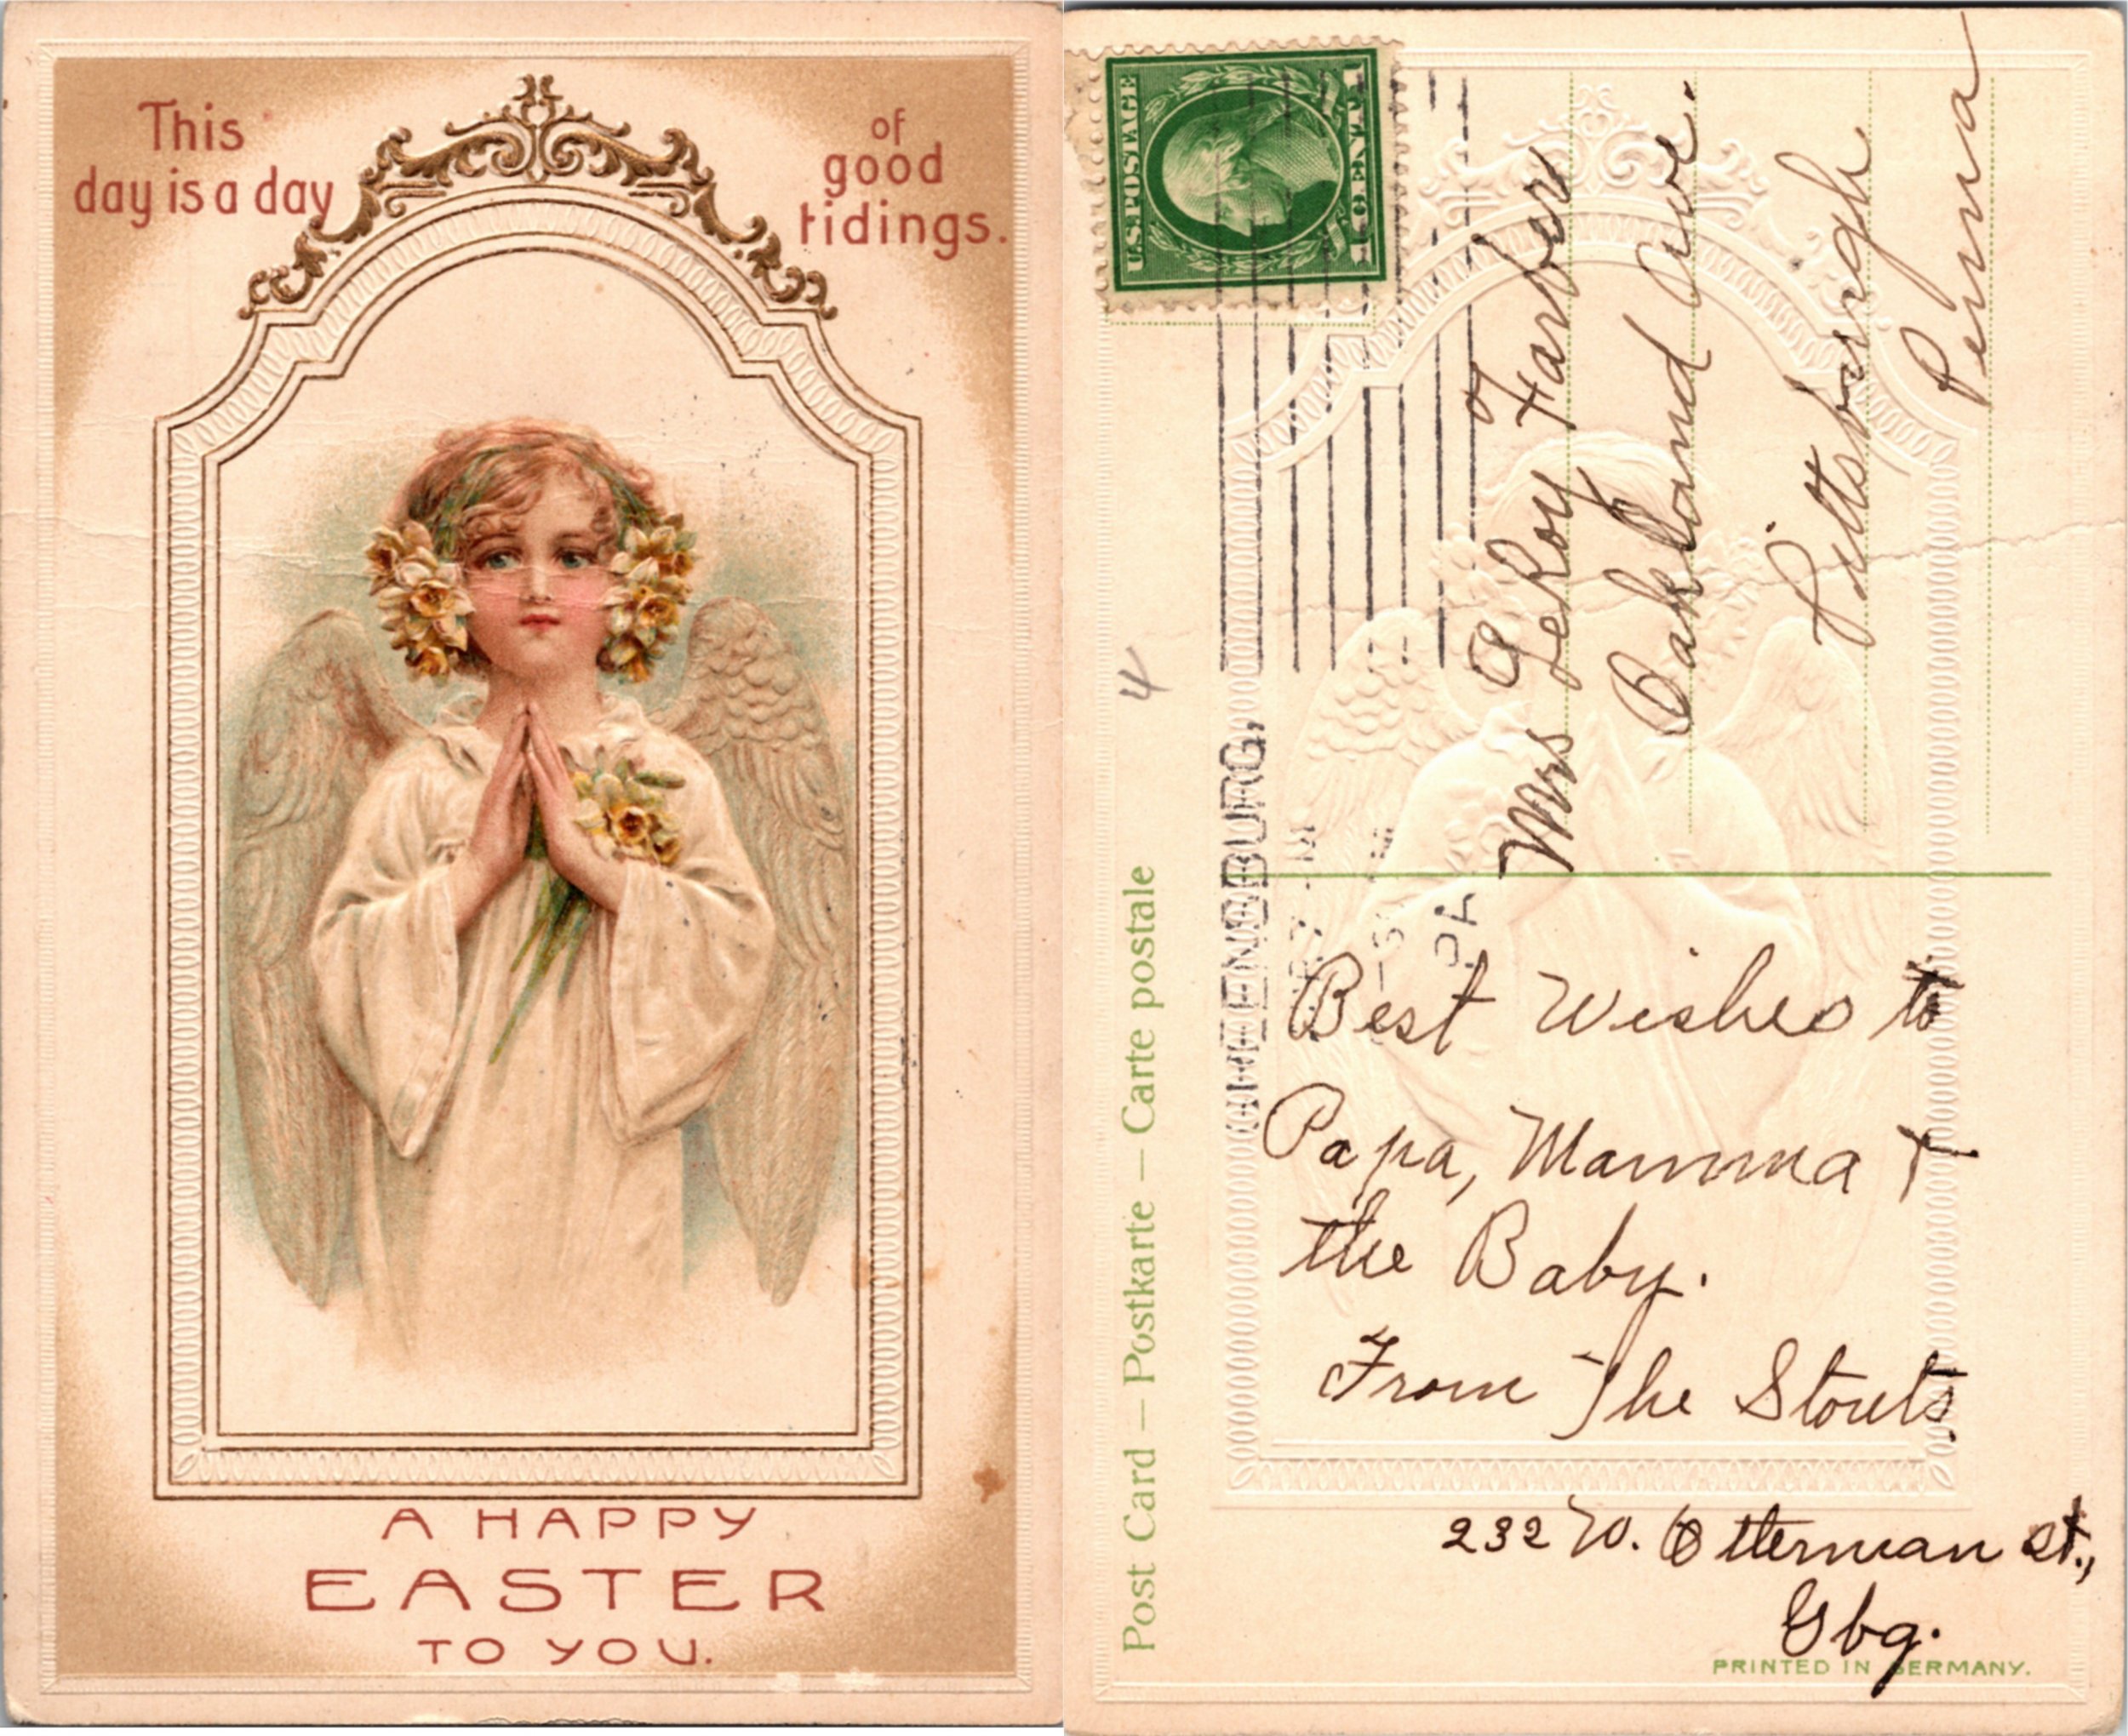 This
day is a day
of
good
tidings.
A HAPPY
EASTER
TO YOU.
U.S. POSTAGE
1 CENT 1
PA
Mrs LeRoy Farber
Oakland Ave.
Pittsburgh
Penna
4
Post Card — Postkarte — Carte postale
Best Wishes to
Papa, Mamma +
the Baby.
From The Stouts.
232 W. Otterman St.,
Gbg.
PRINTED IN GERMANY.